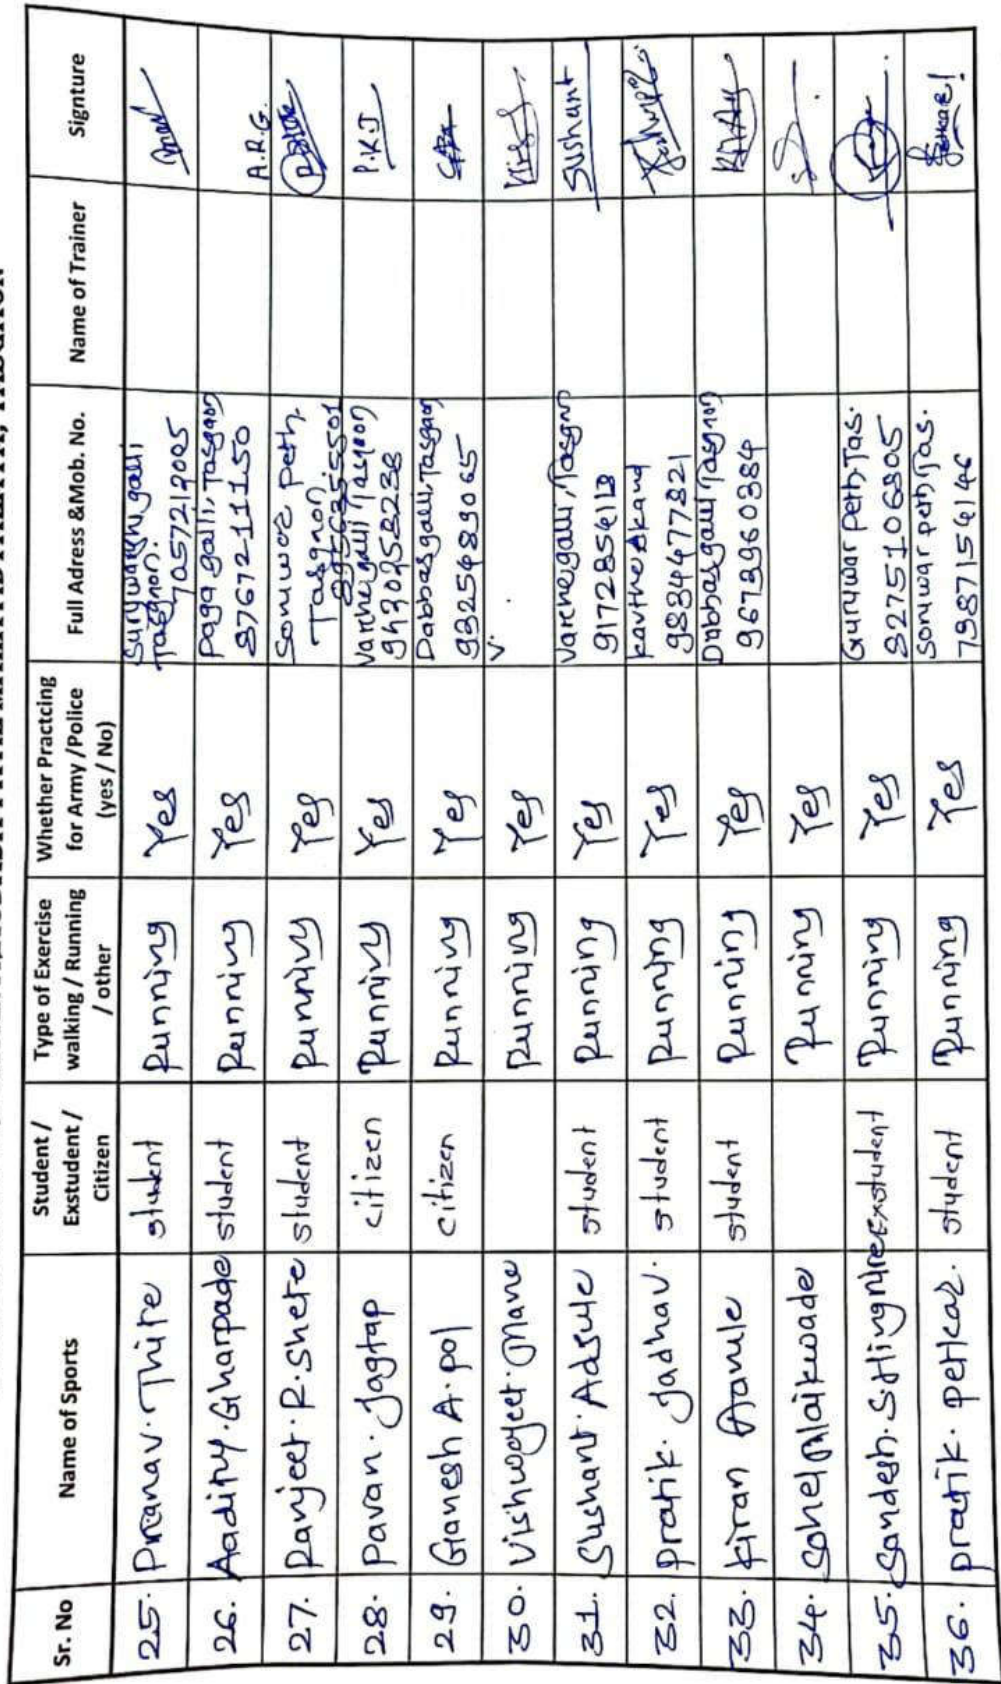 Sr. No | Name of Sports | Student / Exstudent / Citizen | Type of Exercise walking / Running / other | Whether Practcing for Army /Police (yes / No) | Full Adress &Mob. No. | Name of Trainer | Signture
25. Pranav. Thite | student | Running | Yes | Suryawanshi galli Tasgaon. 7057212005
26. Aadity. Gharpade | student | Running | Yes | Paga galli, Tasgaon 8767211150 | A.R.G.
27. Ranjeet. R. Shete | student | Running | Yes | Somwar peth. Tasgaon
28. Pavan. Jagtap | citizen | Running | Yes | Varchegalli Tasgaon 9430258238 | P.K.J
29. Ganesh A. pol | citizen | Running | Yes | Dabbasgalli, Tasgaon 9325489065
30. Vishwajeet. Mane | Running | Yes
31. Sushant. Adsule | student | Running | Yes | Varchegalli, Tasgaon 9172854113 | Sushant
32. Pratik. Jadhav. | student | Running | Yes | Kavthe 9834477321
33. Kiran | student | Running | Yes | Dabbasgalli Tasgaon 9673960384
34. Sohel Naikwade | Running | Yes
35. Sandesh. S. | Exstudent | Running | Yes | Guruwar Peth, Tas. 8275106305
36. pratik. petkar. | student | Running | Yes | Somwar peth, Tas. 7387154146